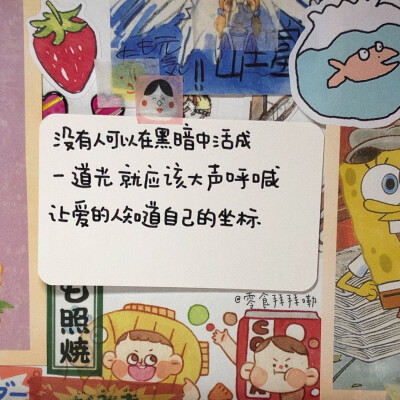 没有人可以在黑暗中活成
一道光 就应该大声呼喊
让爱的人知道自己的坐标
@零食拜拜嘞
照燒
ダー